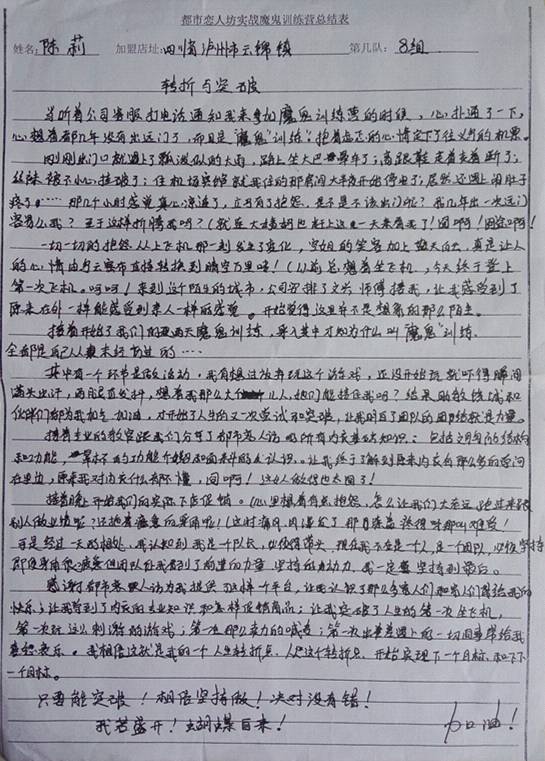 都市恋人坊实战魔鬼训练营总结表
姓名:陈莉 加盟店址:四川省泸州市云锦镇 第几队:8组
转折与突破
当听着公司客服打电话通知我来参加魔鬼训练营的时候,心扑通了一下,
心想着都几年没有出远门了,而且是"魔鬼"训练,抱着忐飞的心情定下了往义乌的机票。
刚刚出门口就遇上了瓢泼似的大雨,路上坐大巴晕车了;高跟鞋走着走着断了;
丝袜被不小心挂破了;住机场宾馆就我住的那房间大半夜开始停电了;居然还遇上闹肚子
痛了……那几个小时感觉真心凉透了,立马有了抱怨,是不是不该出门呢?我几年出一次远门
容易么我?至于这样折腾我吗?(就连大姨妈也赶上这一天来看我了!囧啊!囧囧啊!
一切一切的抱怨从上飞机那一刻发生了变化,空姐的笑容加上蓝天白云,真是让人
的心情由乌云密布直接转换到晴空万里呀!(以前总想着坐飞机,今天终于登上
第一次飞机。呵呵!来到这个陌生的城市,公司安排了文兴师傅接我,让我感受到了
原来在外一样能感受到亲人一样的感觉。开始觉得这里并不是想象的那么陌生。
接着开始了我们的两天魔鬼训练,深入其中才知为什么叫"魔鬼"训练,
全都是自己从来未经历过的……
其中有一个环节是做活动,我有想过放弃玩这个游戏,还没开始玩就吓得瞬间
满头出汗,两腿直发抖,想着我那么大个儿人,他们能接住我吗?结果助教练诚和
伙伴们都为我加气加油,才开始了人生的又一次尝试和突破,让我明白了团队的团结就是力量。
接着专业的教官跟我们分享了都市恋人坊的所有内衣基础知识:包括文胸的结构
和功能,罩杯的功能介绍和面料的认识。让我终于了解到原来内衣有那么多的学问
在里边,原来我对内衣什么都不懂,囧啊!这女人做得也太囧了!
接着晚上开始我们的实际下店促销。(心里想着有点抱怨,怎么让我们大老远跑过来帮
别人做业绩呢?还抱着疲惫的身体啦!(这时海风内衣发了那首凄惨的呀那叫难受!
可是经过一天的相处,我认识到我是个队长,必须得带头,现在我不在是个人,是一个团队,必须坚持
即使身体很疲惫但团队让我看到了前进的力量,坚持的动力,我一定要坚持到最后。
感谢都市恋人坊为我提供了这样个平台,让我认识了那么多家人们和家人们带给我的
快乐;让我学到了内衣的专业知识和怎样促销商品;让我突破了人生的第一次坐飞机,
第一次玩这么刺激的游戏;第一次那么卖力的喊卖;第一次出差遇上的一切困事带给我
喜怒哀乐。我相信这就是我的一个人生转折点,从这个转折点,开始实现下一个目标,和下下
一个目标。
只要能突破!相信坚持做!决对没有错!
我若盛开!蝴蝶自来! 加油!